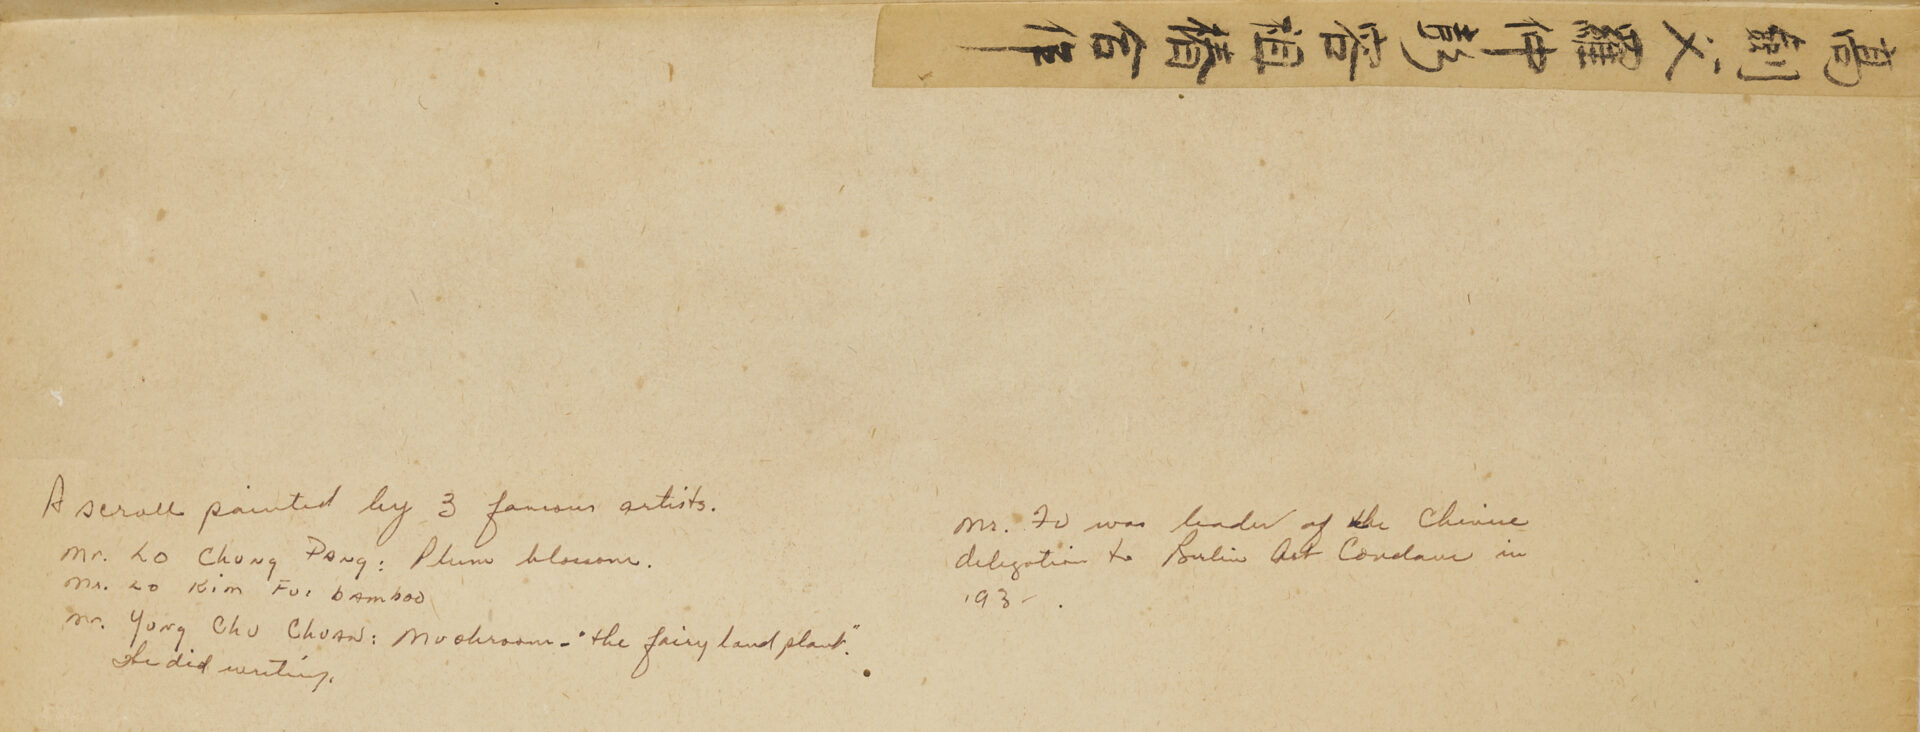 高劍父羅仲彭容祖椿合作
A scroll painted by 3 famous artists.
Mr. Lo Chung Pang: Plum blossom.
Mr. Lo Kim Fu: bamboo
Mr. Yung Chu Chuan: Mushroom - "the fairy land plant".
He did writing.
Mr. Fu was leader of the Chinese
delegation to Berlin Art Conclave in
193- .